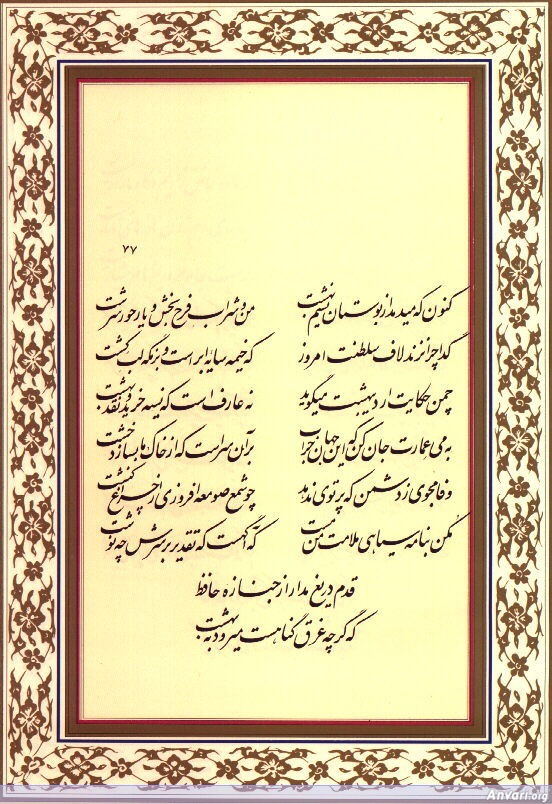 ۷۷
کنون که میدمد از بوستان نسیم بهشت من و شراب فرح بخش و یار حورسرشت
گدا چرا نزند لاف سلطنت امروز که خیمه سایه ابر است و بزمگه لب کشت
چمن حکایت اردیبهشت میگوید نه عارف است که نسیه خرید و نقد بهشت
به می عمارت جان کن که این جهان خراب بر آن سر است که از خاک ما بسازد خشت
وفا مجوی ز دشمن که پرتوی ندهد چو شمع صومعه افروزی از چراغ کنشت
مکن بنامه سیاهی ملامت من مست که آگهست که تقدیر بر سرش چه نوشت
قدم دریغ مدار از جنازه حافظ
که گرچه غرق گناهست میرود به بهشت
Anvari.org